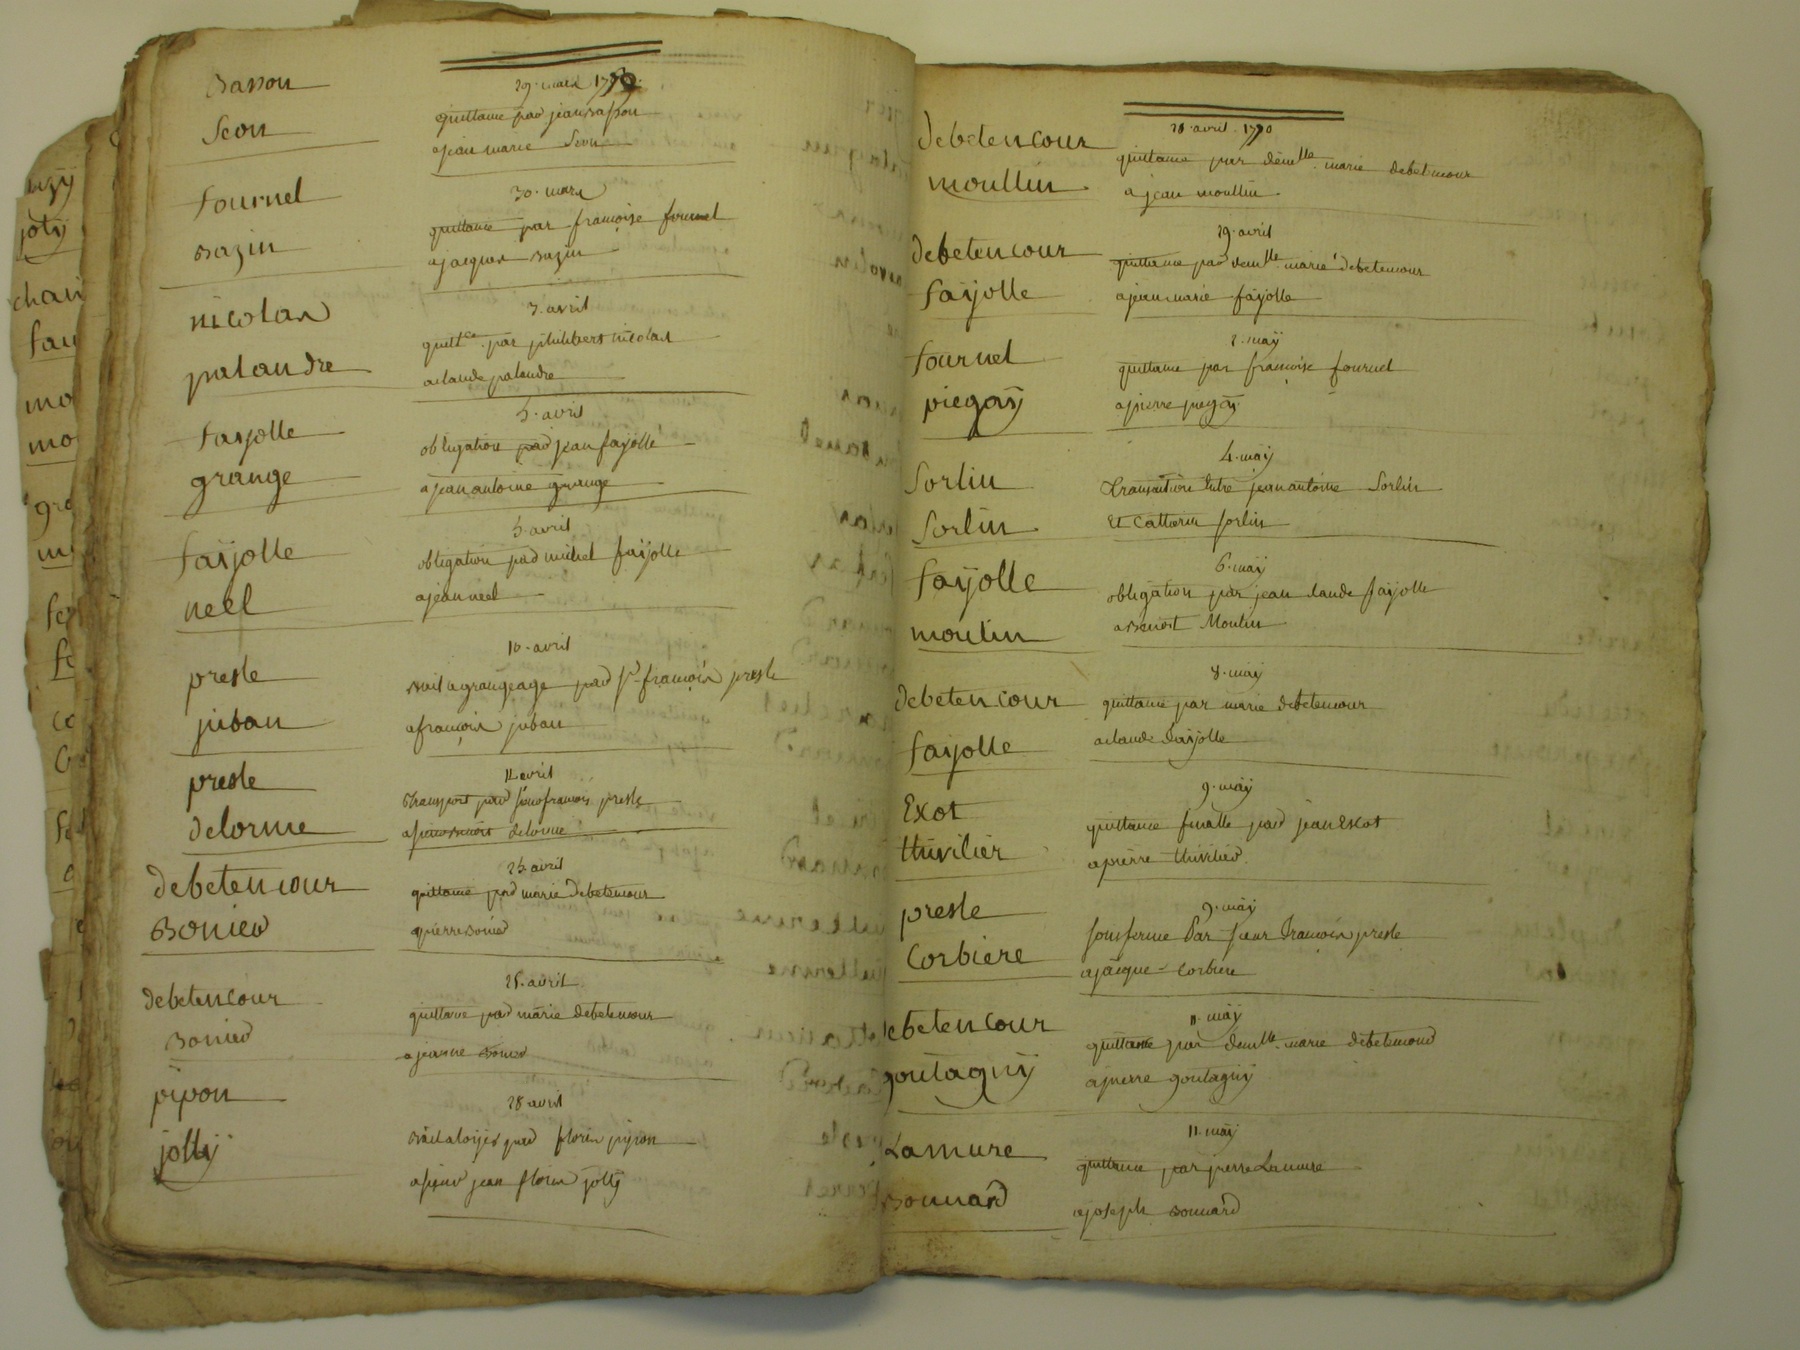 Basson
Seon
29. mars 1790
quittance par jean basson
a jean marie Seon
fournel
Bazin
30. mars
quittance par françoise fournel
a jacques Bazin
nicolas
palandre
3. avril
quitt.ce par philibert nicolas
a claude palandre
fayolle
grange
5. avril
obligation par jean fayolle
a jean antoine grange
fayolle
neel
5. avril
obligation par michel fayolle
a jean neel
presle
juban
10. avril
Bail a grangeage par Sr françois presle
a françois juban
presle
delorme
11. avril
transport par sieur françois presle
a delorme
debetencour
Bonier
25. avril
quittance par marie debetencour
a pierre Bonier
debetencour
Bonier
25. avril
quittance par marie debetencour
a jeanne Bonier
pipon
jolly
28 avril
Bail a loyer par floris pipon
a sieur jean floris jolly
debetencour
moullin
28. avril. 1790
quittance par demlle. marie debetencour
a jean moullin
debetencour
fayolle
29. avril
quittance par demlle. marie debetencour
a jean marie fayolle
fournel
piegay
2. may
quittance par françoise fournel
a pierre piegay
Sorlin
Sorlin
4. may
transaction Entre jean antoine Sorlin
Et Catterin Sorlin
fayolle
moulin
6. may
obligation par jean claude fayolle
a Benoit Moulin
debetencour
fayolle
8. may
quittance par marie debetencour
a claude fayolle
Exot
thivilier
9. may
quittance finalle par jean Exot
a pierre thivilier
presle
Corbiere
9. may
sousferme Par sieur francois presle
a jacque Corbiere
debetencour
goutagny
11. may
quittance par demlle. marie debetencour
a pierre goutagny
Lamure
Bonnard
11. may
quittance par pierre Lamure
a joseph Bonnard